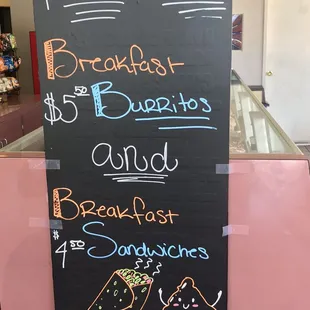 Breakfast
$5.50 Burritos
and
Breakfast
$4.50 Sandwiches